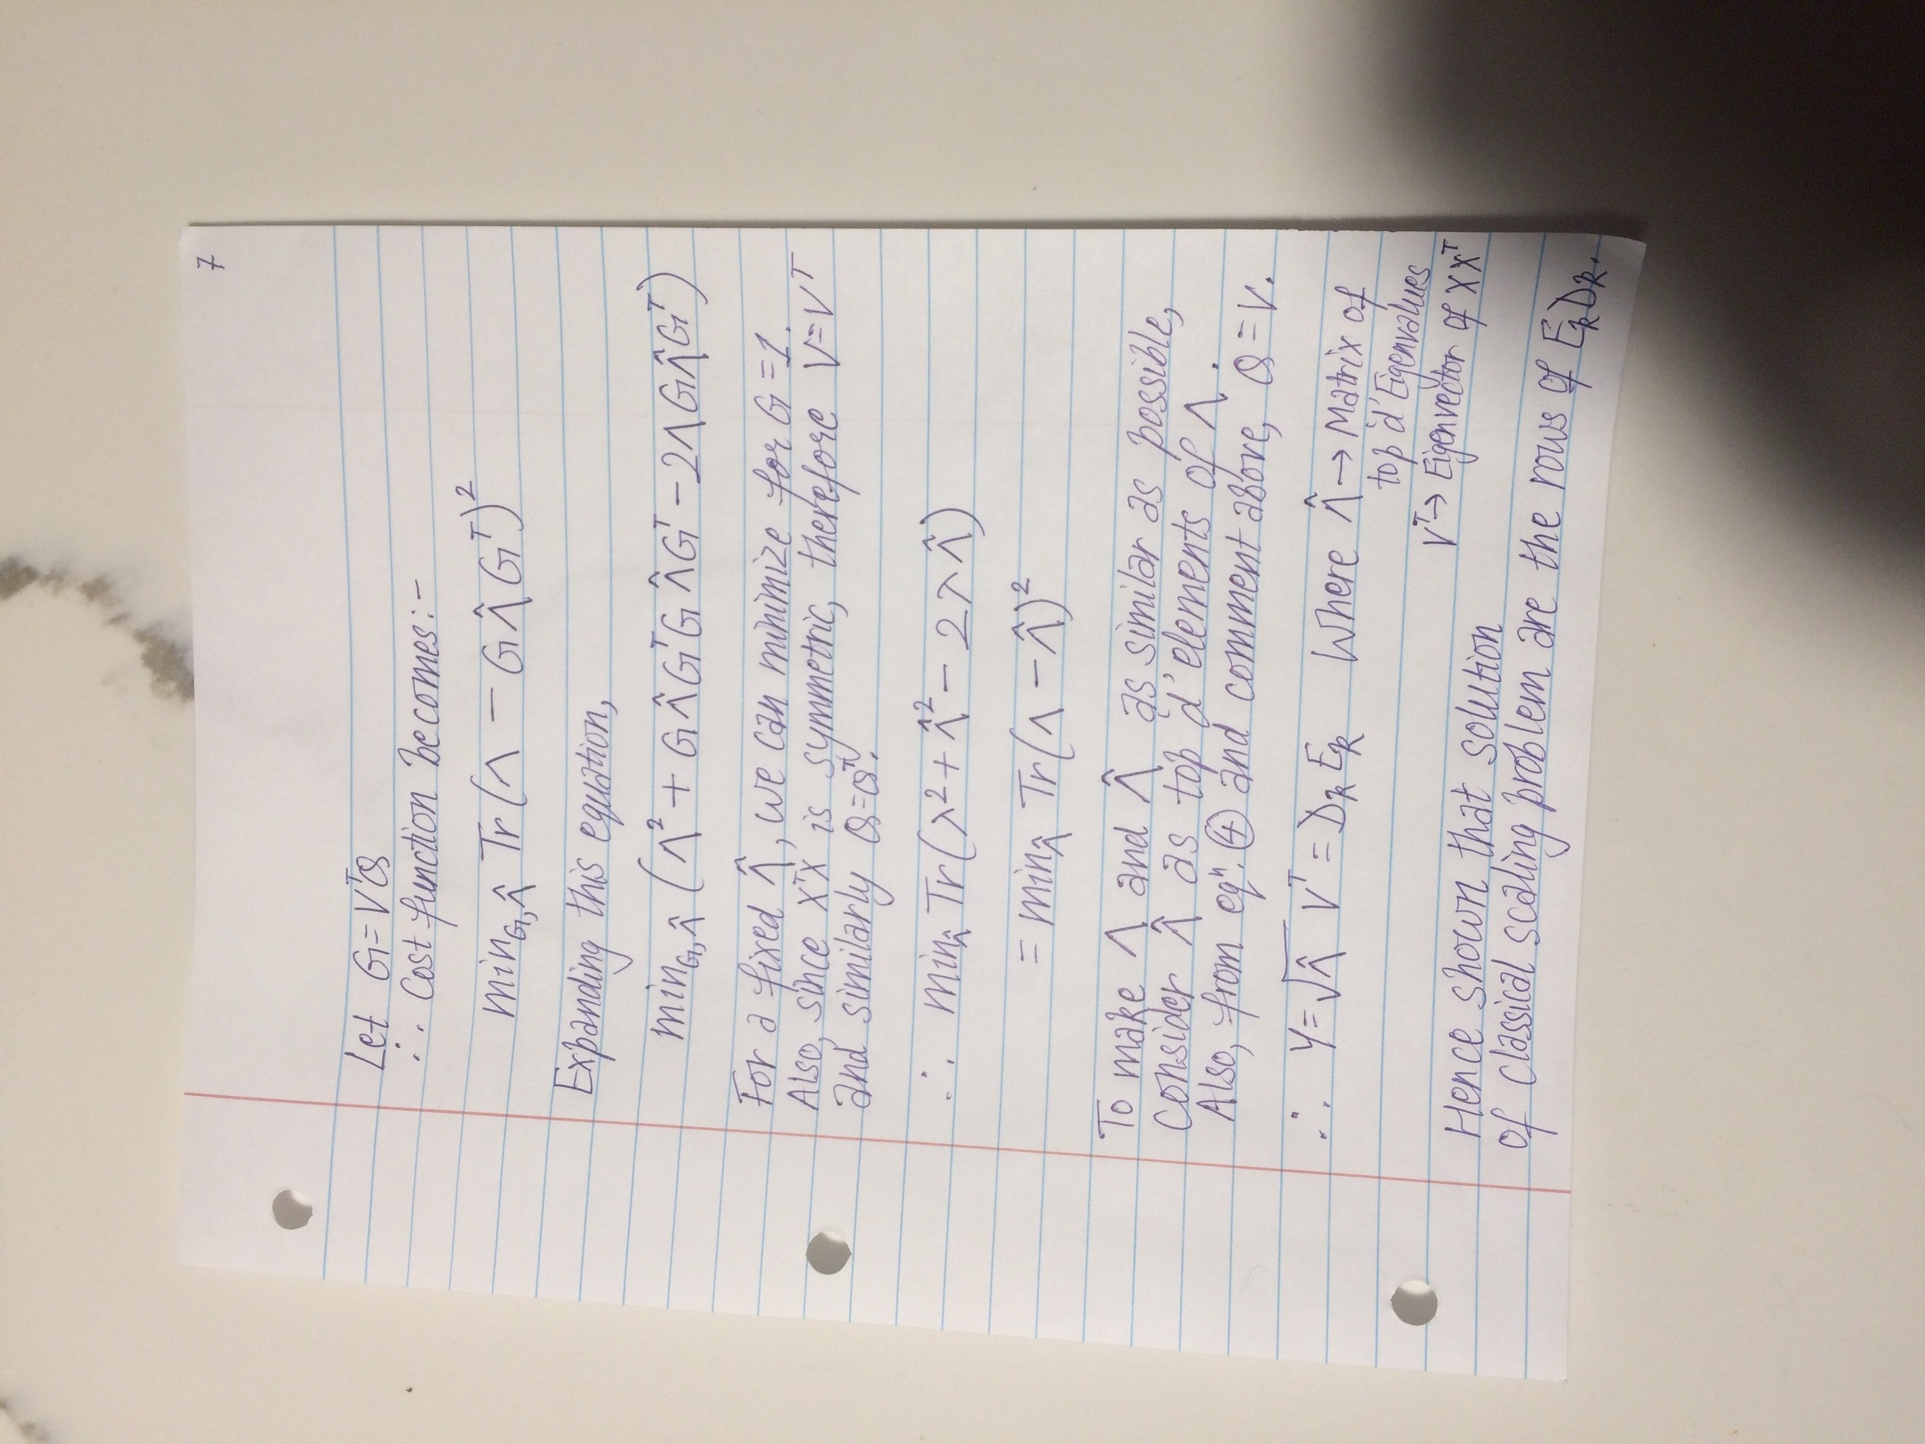 7
Let G = VᵀQ
∴ Cost function becomes:-
min_{G,Λ̂} Tr(Λ - GΛ̂Gᵀ)²
Expanding this equation,
min_{G,Λ̂} (Λ² + GΛ̂GᵀGΛ̂Gᵀ - 2ΛGΛ̂Gᵀ)
For a fixed Λ̂, we can minimize for G = 1.
Also, since XᵀX is symmetric, therefore V = Vᵀ
and similarly Q = Qᵀ.
∴ min_Λ̂ Tr(λ² + Λ̂² - 2λΛ̂)
= min_Λ̂ Tr(Λ - Λ̂)²
To make Λ and Λ̂ as similar as possible,
Consider Λ̂ as top d' elements of Λ.
Also, from eqⁿ. ④ and comment above, Q = V.
∴ Y = √Λ̂ Vᵀ = D_k E_k Where Λ̂ → Matrix of
top d' Eigenvalues
Vᵀ → Eigenvector of XXᵀ
Hence shown that solution
of classical scaling problem are the rows of E_k D_k.